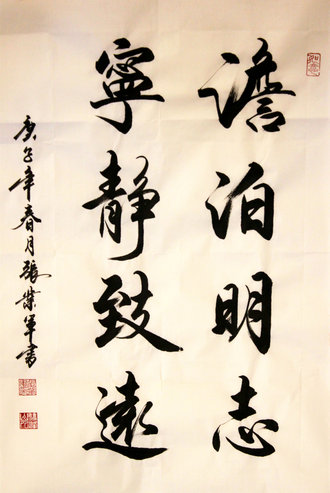 澹泊明志
寧靜致遠
庚子年春月張業軍書